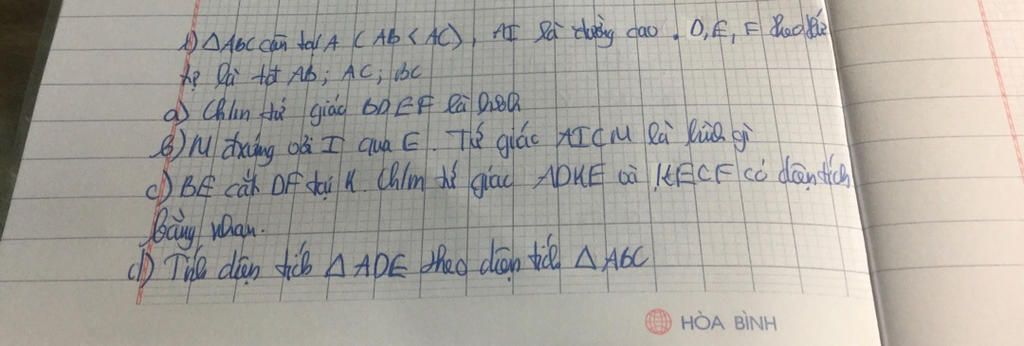 1) △ABC cân tại A (AB < AC), AI là đường cao. D, E, F theo thứ
tự là tđ AB; AC; BC
a) Chm tứ giác BDEF là hbh
b) M đxứng với I qua E. Tứ giác AICM là hình gì
c) BE cắt DF tại K. Chm tứ giác ADKE và KECF có diện tích
bằng nhau.
d) Tính diện tích △ADE theo diện tích △ABC
HÒA BÌNH